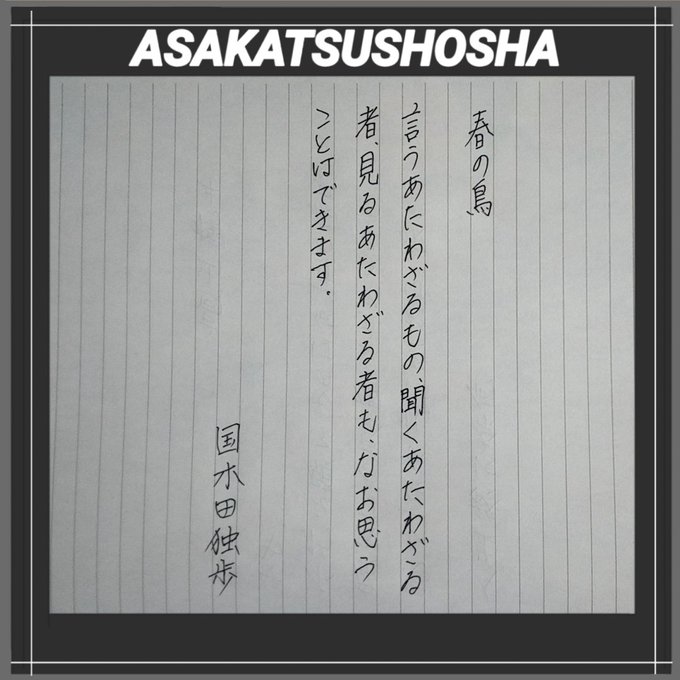 ASAKATSUSHOSHA
春の鳥
言うあたわざるもの、聞くあたわざる
者、見るあたわざる者も、なお思う
ことはできます。
国木田独歩